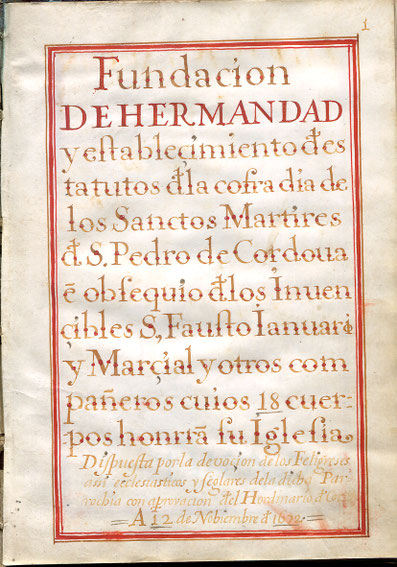 1
Fundacion
DE HERMANDAD
y eſtableçimiento đ es
tatutos đ la cofradia de
los Sanctos Martires
đ S. Pedro de Cordoua
ē obſequio đ los Inuen
çibles S, Fauſto Ianuario
y Marçial y otros com
pañeros cuios 18 cuer-
pos honrrā ſu Igleſia.
Dispuesta por la devoçion de los Feligreses
assi ecclesiasticos y seglores de la dicha Par
rochia con aprovacion del
A 12 de Nobiembre đ